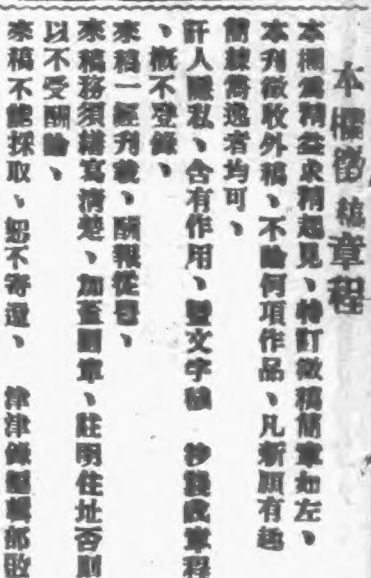 本欄徵稿章程
本欄爲精益求精起見、特訂徵稿簡章如左、
本刊徵收外稿、不論何項作品、凡新頴有趣
簡　雋逸者均可、
訐人陰私、含有作用、　文字　　抄襲
、概不登錄、
來稿一經刊載、酬報從　、
來稿務須繕寫清楚、加蓋圖章、註明住址否則
以不受酬論、
來稿不能採取、恕不寄還、　津津